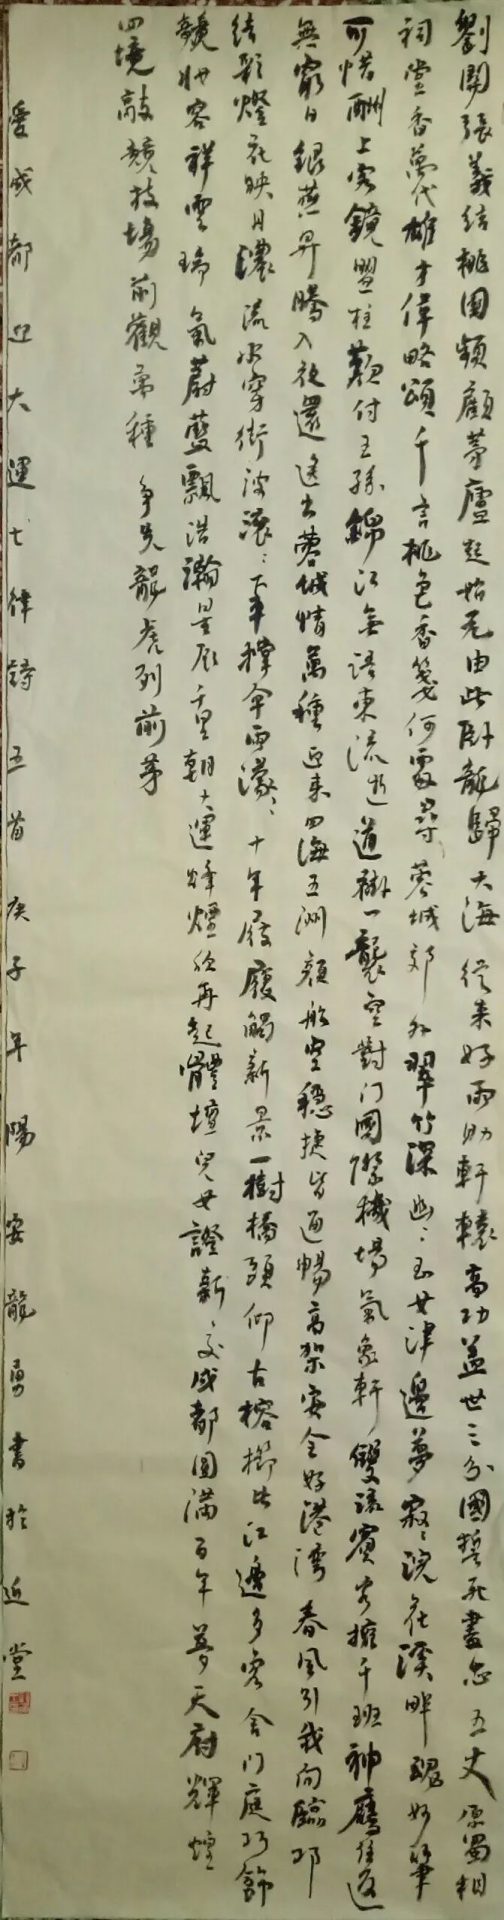 劉關張義結桃園頻顧茅廬起始元由此臥龍歸大海從來好雨助軒轅高功蓋世三分國誓死盡忠五丈原蜀相
祠堂香萬代雄才偉略頌千言桃色香箋何處尋蓉城郊外翠竹深幽幽玉女津邊夢寂寂浣花溪畔魂好筆
可惜酬上客鏡盟枉歎付王孫錦江無語東流逝道袍一襲空對門國際機場氣象軒雙流賓客擁千班神鷹往返
無窮日銀燕昇騰入夜還送出蓉城情萬種迎來四海五洲顏航空穩捷皆通暢高架安全好港灣春風引我向臨邛
結彩燈花映日濃流水穿街波滾滾下車撐傘雨濛濛十年履觸新景一樹橋頭仰古榕攤皆江邊多客舍門庭巧飾
競妝容祥雲瑞氣蔚藍飄浩瀚星辰千里朝大運烽煙欣再起體壇兒女證新交成都圓滿百年夢天府輝煌
四境敲競技場前觀万種爭先龍虎列前茅
愛成都迎大運七律詩五首庚子年陽安龍勇書於近堂